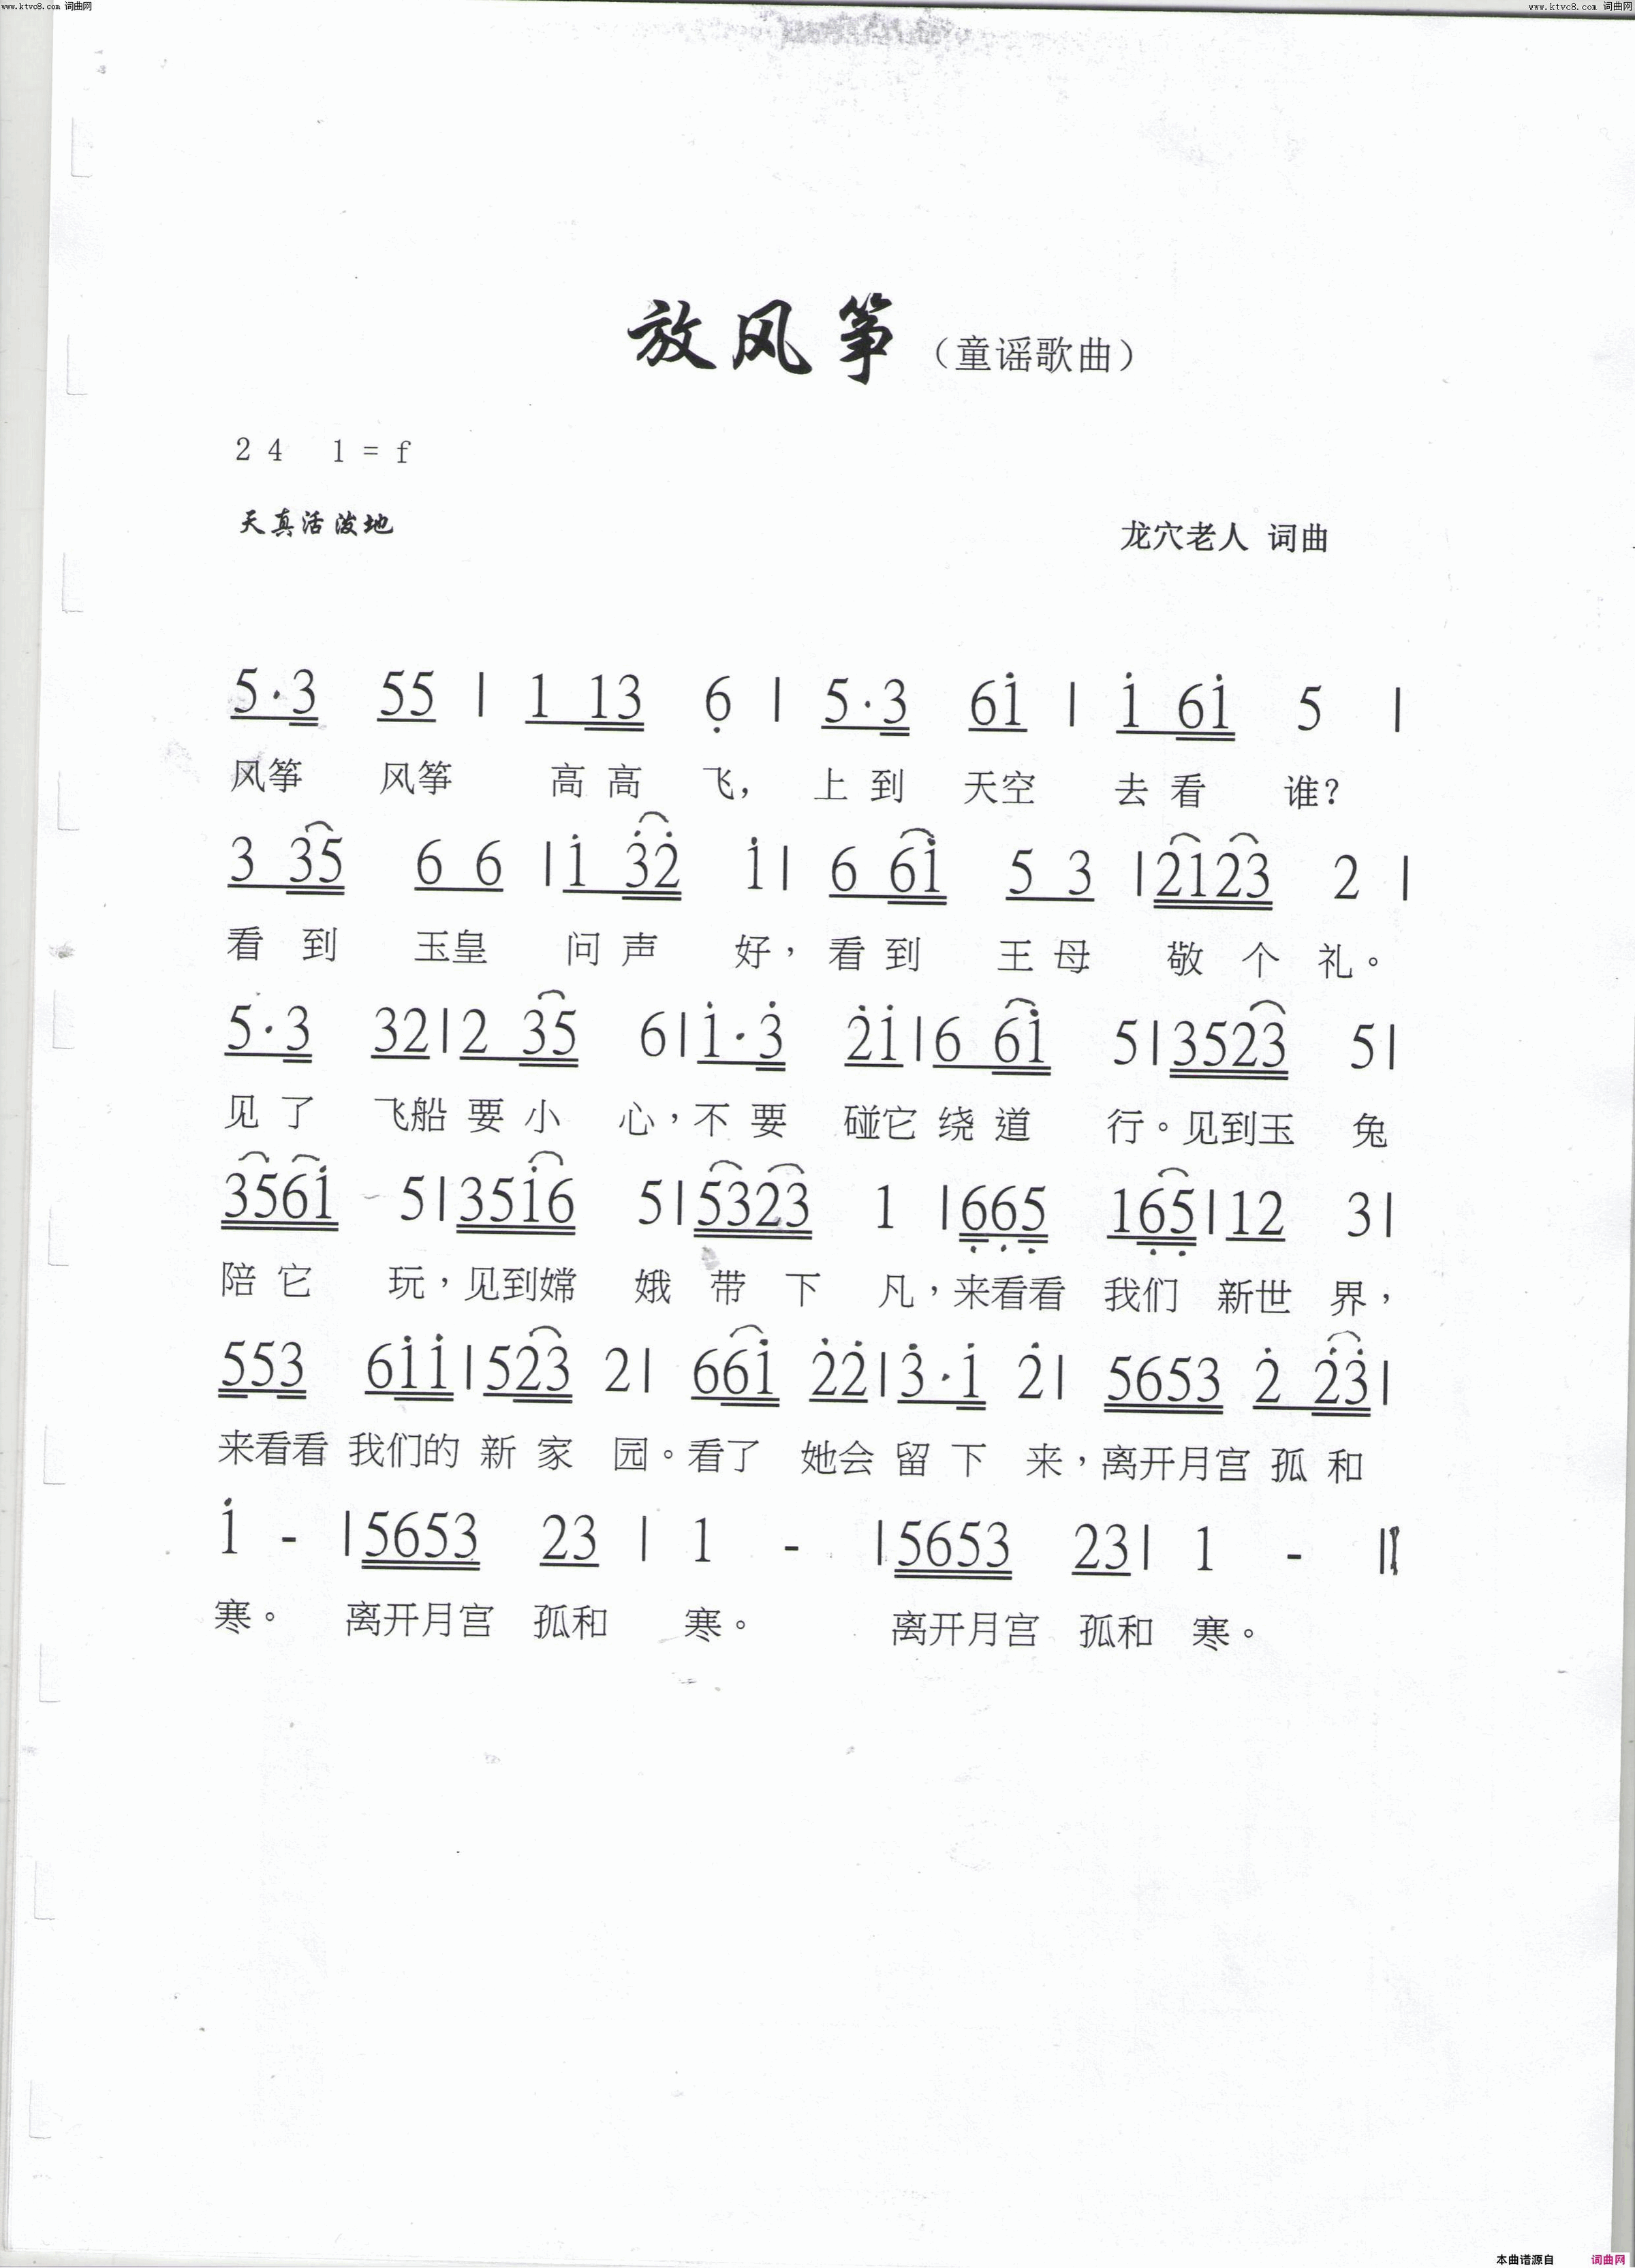 www.ktvc8.com 词曲网 www.ktvc8.com 词曲网
放风筝（童谣歌曲）
2 4 1 = f
天真活泼地
龙穴老人 词曲
5·3 55 | 1 13 6̣ | 5·3 61̇ | 1̇ 61̇ 5 |
风筝 风筝 高 高 飞， 上 到 天空 去 看 谁？
3 35 6 6 | 1̇ 3̇2̇ 1̇ | 6 61̇ 5 3 | 2123 2 |
看 到 玉皇 问 声 好，看 到 王 母 敬 个 礼。
5·3 32 | 2 35 6 | 1̇·3̇ 2̇1̇ | 6 61̇ 5 | 3523 5 |
见 了 飞船 要 小 心，不 要 碰它 绕 道 行。见到玉 兔
3561̇ 5 | 351̇6 5 | 5323 1 | 6̣6̣5̣ 16̣5̣ | 12 3 |
陪 它 玩，见到嫦 娥 带 下 凡，来看看 我们 新世 界，
553 61̇1̇ | 523 2 | 661̇ 2̇2̇ | 3̇·1̇ 2̇ | 5653 2̇ 2̇3̇ |
来看看 我们的 新 家 园。看了 她会 留 下 来，离开月宫 孤 和
1̇ - | 5653 23 | 1 - | 5653 23 | 1 - ‖
寒。 离开月宫 孤和 寒。 离开月宫 孤和 寒。
本曲谱源自 词曲网